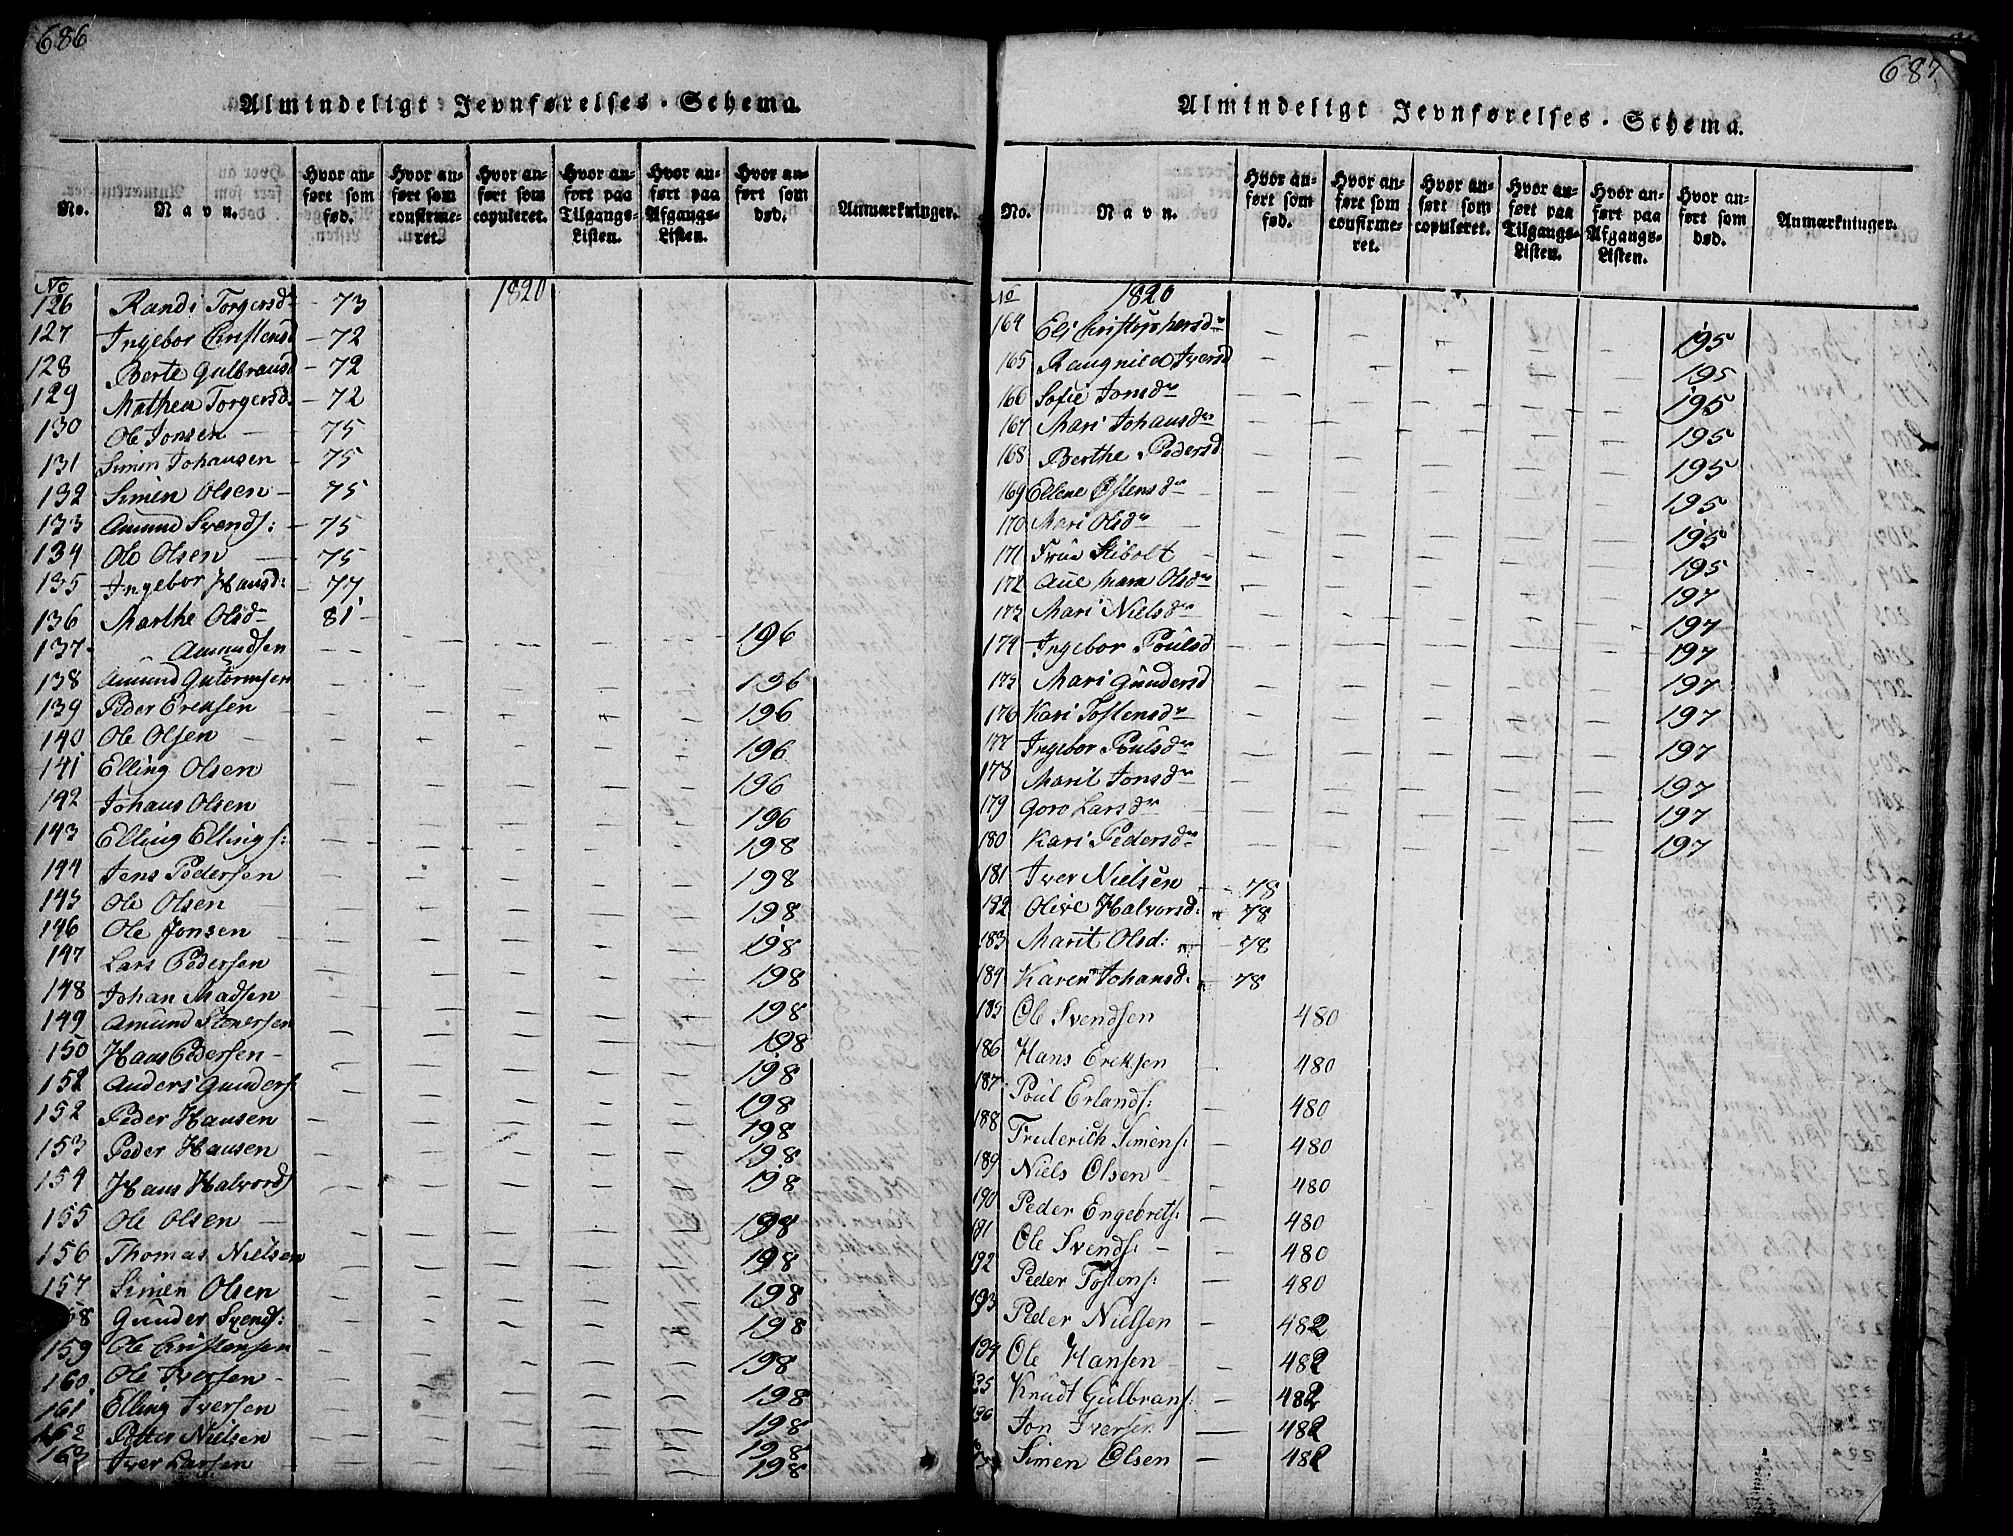 686
Almindeligt Jevnførelses-Schema.
No. Navn. Hvor anført som fød. Hvor anført som confirmeret. Hvor anført som copuleret. Hvor anført paa Tilgangs-Listen. Hvor anført paa Afgangs-Listen. Hvor anført som død. Anmærkninger.
No 1820
126 Randi Torgersdr 73
127 Ingebor Christensd 72
128 Berte Gulbransd 72
129 Mathea Torgersd. 72
130 Ole Jonsen 75
131 Simen Johansen 75
132 Simen Olsen 75
133 Amund Svends: 75
134 Ole Olsen 75
135 Ingebor Hansd: 77
136 Marthe Olsd 81
137 Amundsen 196
138 Amund Gutormsen 196
139 Peder Ereksen 196
140 Ole Olsen 196
141 Elling Olsen 196
142 Johans Olsen 196
143 Elling Ellings: 198
144 Jens Pedersen 198
145 Ole Olsen 198
146 Ole Jonsen 198
147 Lars Pedersen 198
148 Johan Madsen 198
149 Amund Stenersen 198
150 Hans Pedersen 198
151 Anders Gunders: 198
152 Peder Hansen 198
153 Peder Hansen 198
154 Hans Halvords 198
155 Ole Olsen 198
156 Thomas Nielsen 198
157 Simen Olsen 198
158 Gunder Svends: 198
159 Ole Christensen 198
160 Ole Iversen 198
161 Elling Iversen 198
162 Petter Nielsen 198
163 Iver Larsen 198
687
Almindeligt Jevnførelses-Schema.
No. Navn. Hvor anført som fød. Hvor anført som confirmeret. Hvor anført som copuleret. Hvor anført paa Tilgangs-Listen. Hvor anført paa Afgangs-Listen. Hvor anført som død. Anmærkninger.
No 1820
164 Eli Christophersdr 195
165 Rangnild Iversd 195
166 Sofie Jonsdr 195
167 Mari Johansdr 195
168 Berthe Pedersd 195
169 Ellene Østensdr 195
170 Mari Olsdr 195
171 Frue Stibolt 195
172 Ane Mara Olsdr 197
173 Mari Nielsdr 197
174 Ingebor Poulsd 197
175 Mari Gundersd 197
176 Kari Tostensdr 197
177 Ingebor Poulsdr 197
178 Marit Jonsdr 197
179 Goro Larsdr 197
180 Kari Pedersdr 197
181 Iver Nielsen 78
182 Olive Halvorsd: 78
183 Marit Olsd: 78
184 Karen Johansd: 78
185 Ole Svendsen 480
186 Hans Ereksen 480
187 Poul Erlands: 480
188 Frederich Simens: 480
189 Niels Olsen 480
190 Peder Engebrets: 480
191 Ole Svends: 480
192 Peder Tostens: 480
193 Peder Nielsen 482
194 Ole Hansen 482
195 Knudt Gulbrans: 482
196 Jon Iversen 482
Simen Olsen 482